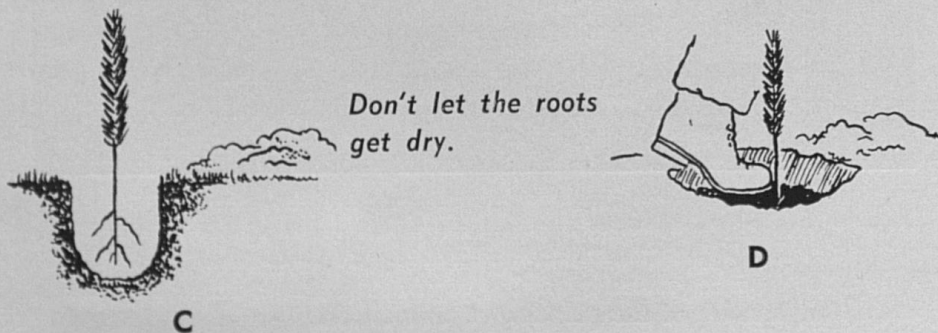 Don't let the roots
get dry.
C
D